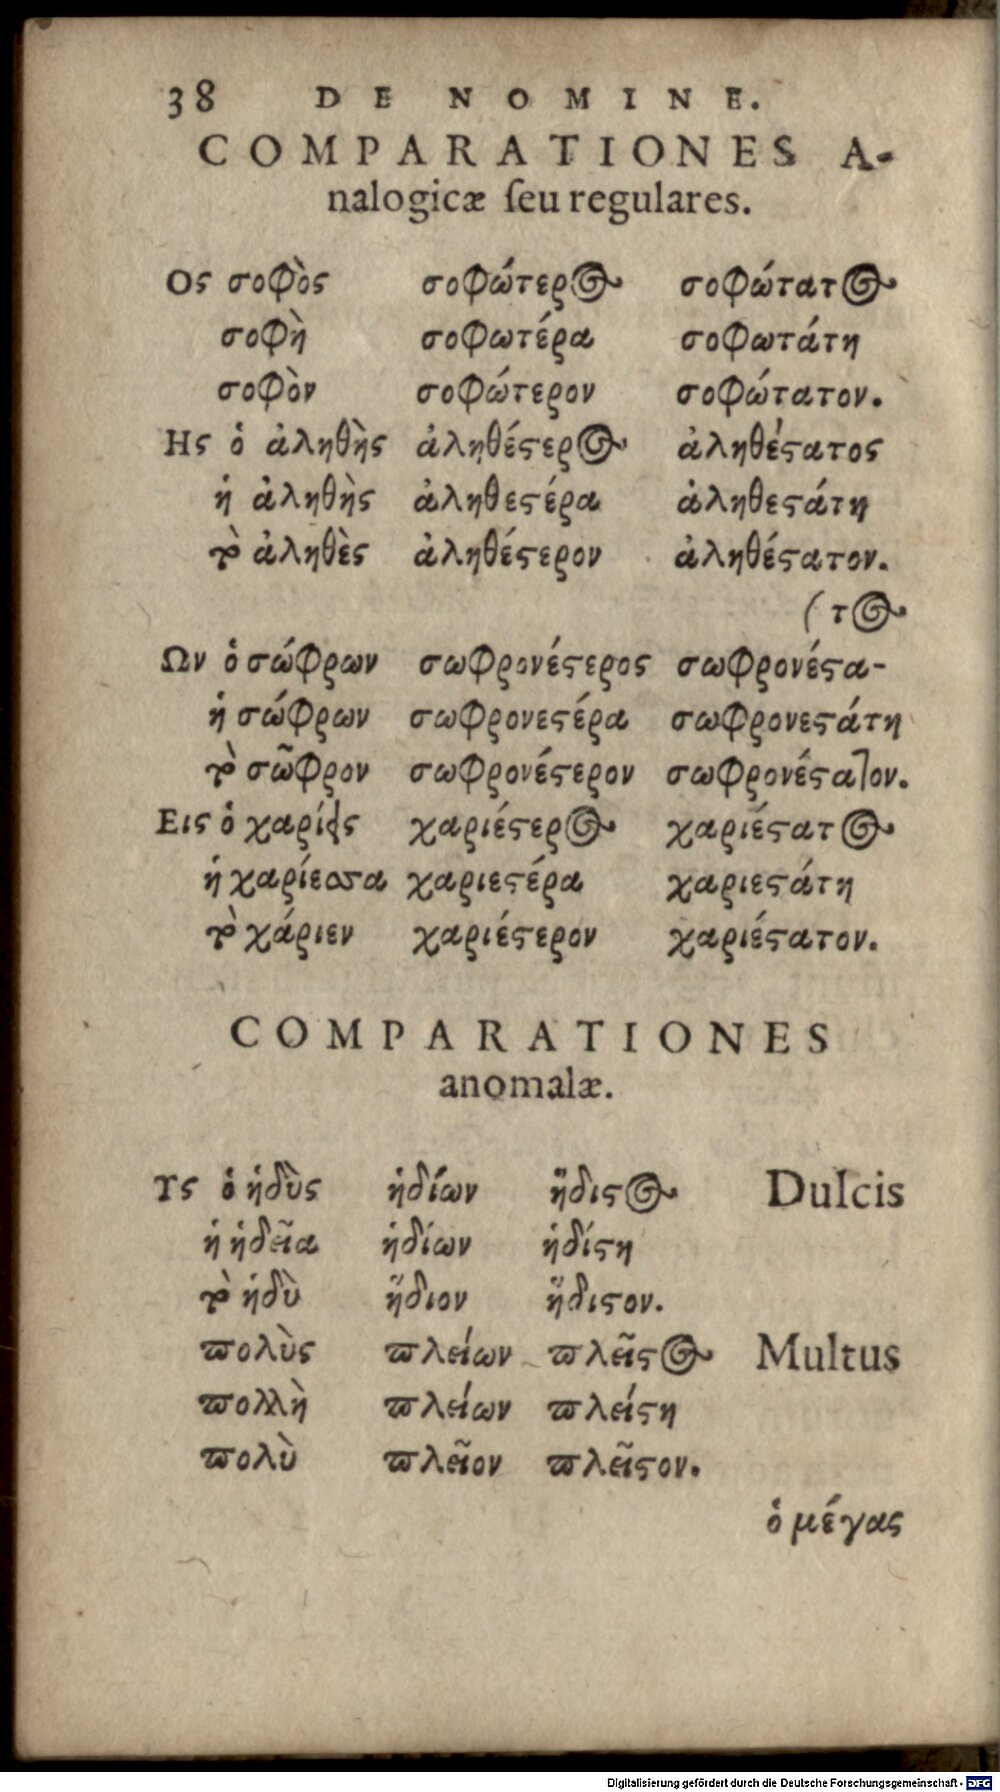 38 DE NOMINE.
COMPARATIONES A-
nalogicæ ſeu regulares.
Ος σοφὸς σοφώτερος σοφώτατος
σοφὴ σοφωτέρα σοφωτάτη
σοφὸν σοφώτερον σοφώτατον.
Ης ὁ ἀληθὴς ἀληθέϛερος ἀληθέϛατος
ἡ ἀληθὴς ἀληθεϛέρα ἀληθεϛάτη
τὸ ἀληθὲς ἀληθέϛερον ἀληθέϛατον.
(τος
Ων ὁ σώφρων σωφρονέϛερος σωφρονέϛα-
ἡ σώφρων σωφρονεϛέρα σωφρονεϛάτη
τὸ σῶφρον σωφρονέϛερον σωφρονέϛατον.
Εις ὁ χαρίεις χαριέϛερος χαριέϛατος
ἡ χαρίεσσα χαριεϛέρα χαριεϛάτη
τὸ χάριεν χαριέϛερον χαριέϛατον.
COMPARATIONES
anomalæ.
Υς ὁ ἡδὺς ἡδίων ἥδιϛος Dulcis
ἡ ἡδεῖα ἡδίων ἡδίϛη
τὸ ἡδὺ ἥδιον ἥδιϛον.
ϖολὺς ϖλείων ϖλεῖϛος Multus
ϖολλὴ ϖλείων ϖλείϛη
ϖολὺ ϖλεῖον ϖλεῖϛον.
ὁ μέγας
Digitalisierung gefördert durch die Deutsche Forschungsgemeinschaft - DFG